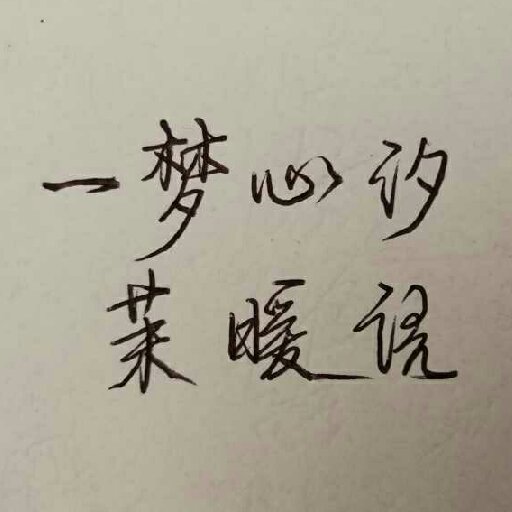 一梦心汐
茉暖说